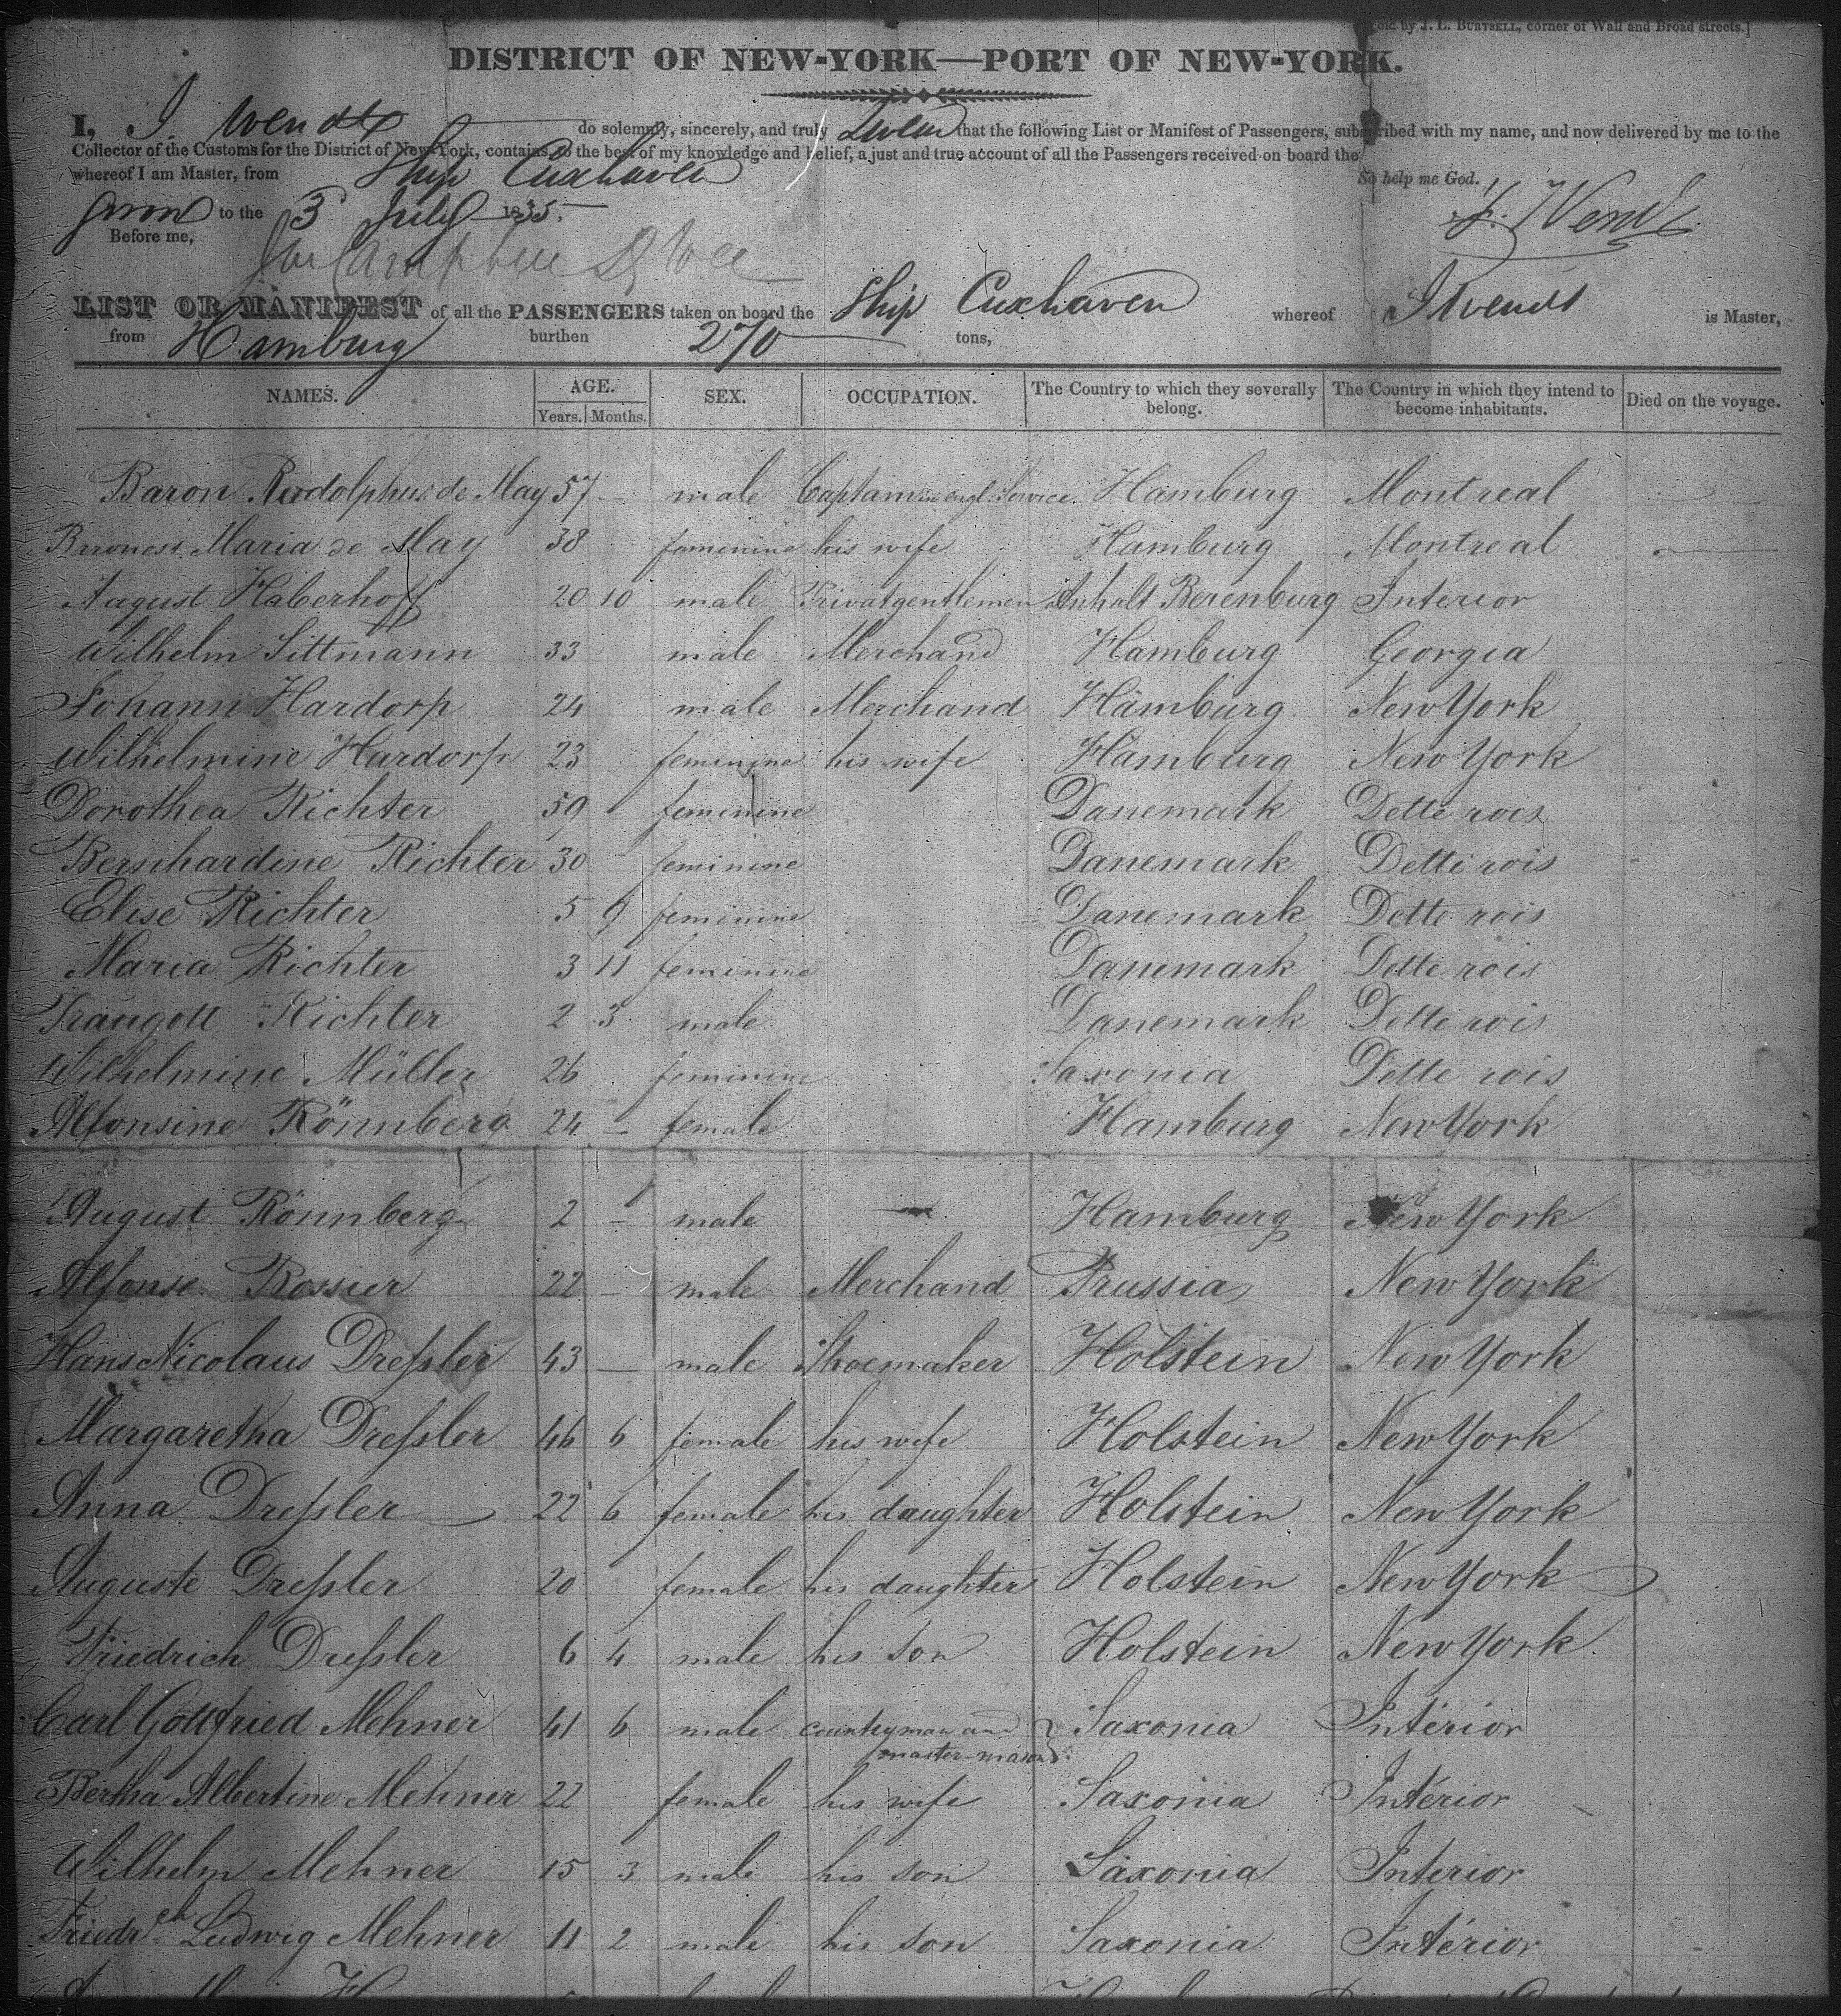 old by J. L. BURTSELL, corner of Wall and Broad streets.]
DISTRICT OF NEW-YORK—PORT OF NEW-YORK.
I, J. Wendt do solemnly, sincerely, and truly Swear that the following List or Manifest of Passengers, subscribed with my name, and now delivered by me to the
Collector of the Customs for the District of New-York, contains, to the best of my knowledge and belief, a just and true account of all the Passengers received on board the
whereof I am Master, from Ship Cuxhaven So help me God.
Sworn to the 3 July 1835. J. Wendt
Before me,
LIST OR MANIFEST of all the PASSENGERS taken on board the Ship Cuxhaven whereof J Wendt is Master,
from Hamburg burthen 270 tons,
NAMES. AGE. Years. Months. SEX. OCCUPATION. The Country to which they severally belong. The Country in which they intend to become inhabitants. Died on the voyage.
Baron Rudolphus de May 57 — male Captain in engl. Service. Hamburg Montreal
Baroness Maria de May 38 feminine his wife Hamburg Montreal
August Haberhoff 20 10 male Privatgentlemen Anhalt Berenburg Interior
Wilhelm Sittmann 33 male Merchand Hamburg Georgia
Johann Hardorp 24 male Merchand Hamburg New York
Wilhelmine Hardorp 23 feminine his wife Hamburg New York
Dorothea Richter 59 feminine Danemark Dette rois
Bernhardine Richter 30 feminine Danemark Dette rois
Elise Richter 5 9 feminine Danemark Dette rois
Maria Richter 3 11 feminine Danemark Dette rois
Traugott Richter 2 3 male Danemark Dette rois
Wilhelmine Müller 26 feminine Saxonia Dette rois
Alfonsine Rönnberg 24 — female Hamburg New York
August Rönnberg 2 — male — Hamburg New York
Alfonse Rossier 22 — male Merchand Prussia New York
Hans Nicolaus Dreſsler 43 — male Shoemaker Holstein New York
Margaretha Dreſsler 46 6 female his wife Holstein New York
Anna Dreſsler 22 6 female his daughter Holstein New York
Auguste Dreſsler 20 female his daughter Holstein New York
Friedrich Dreſsler 6 4 male his son Holstein New York
Carl Gottfried Mehner 41 6 male countryman and master-mason Saxonia Interior
Bertha Albertine Mehner 22 female his wife Saxonia Interior
Wilhelm Mehner 15 3 male his son Saxonia Interior
Friedr.ch Ludwig Mehner 11 2 male his son Saxonia Interior